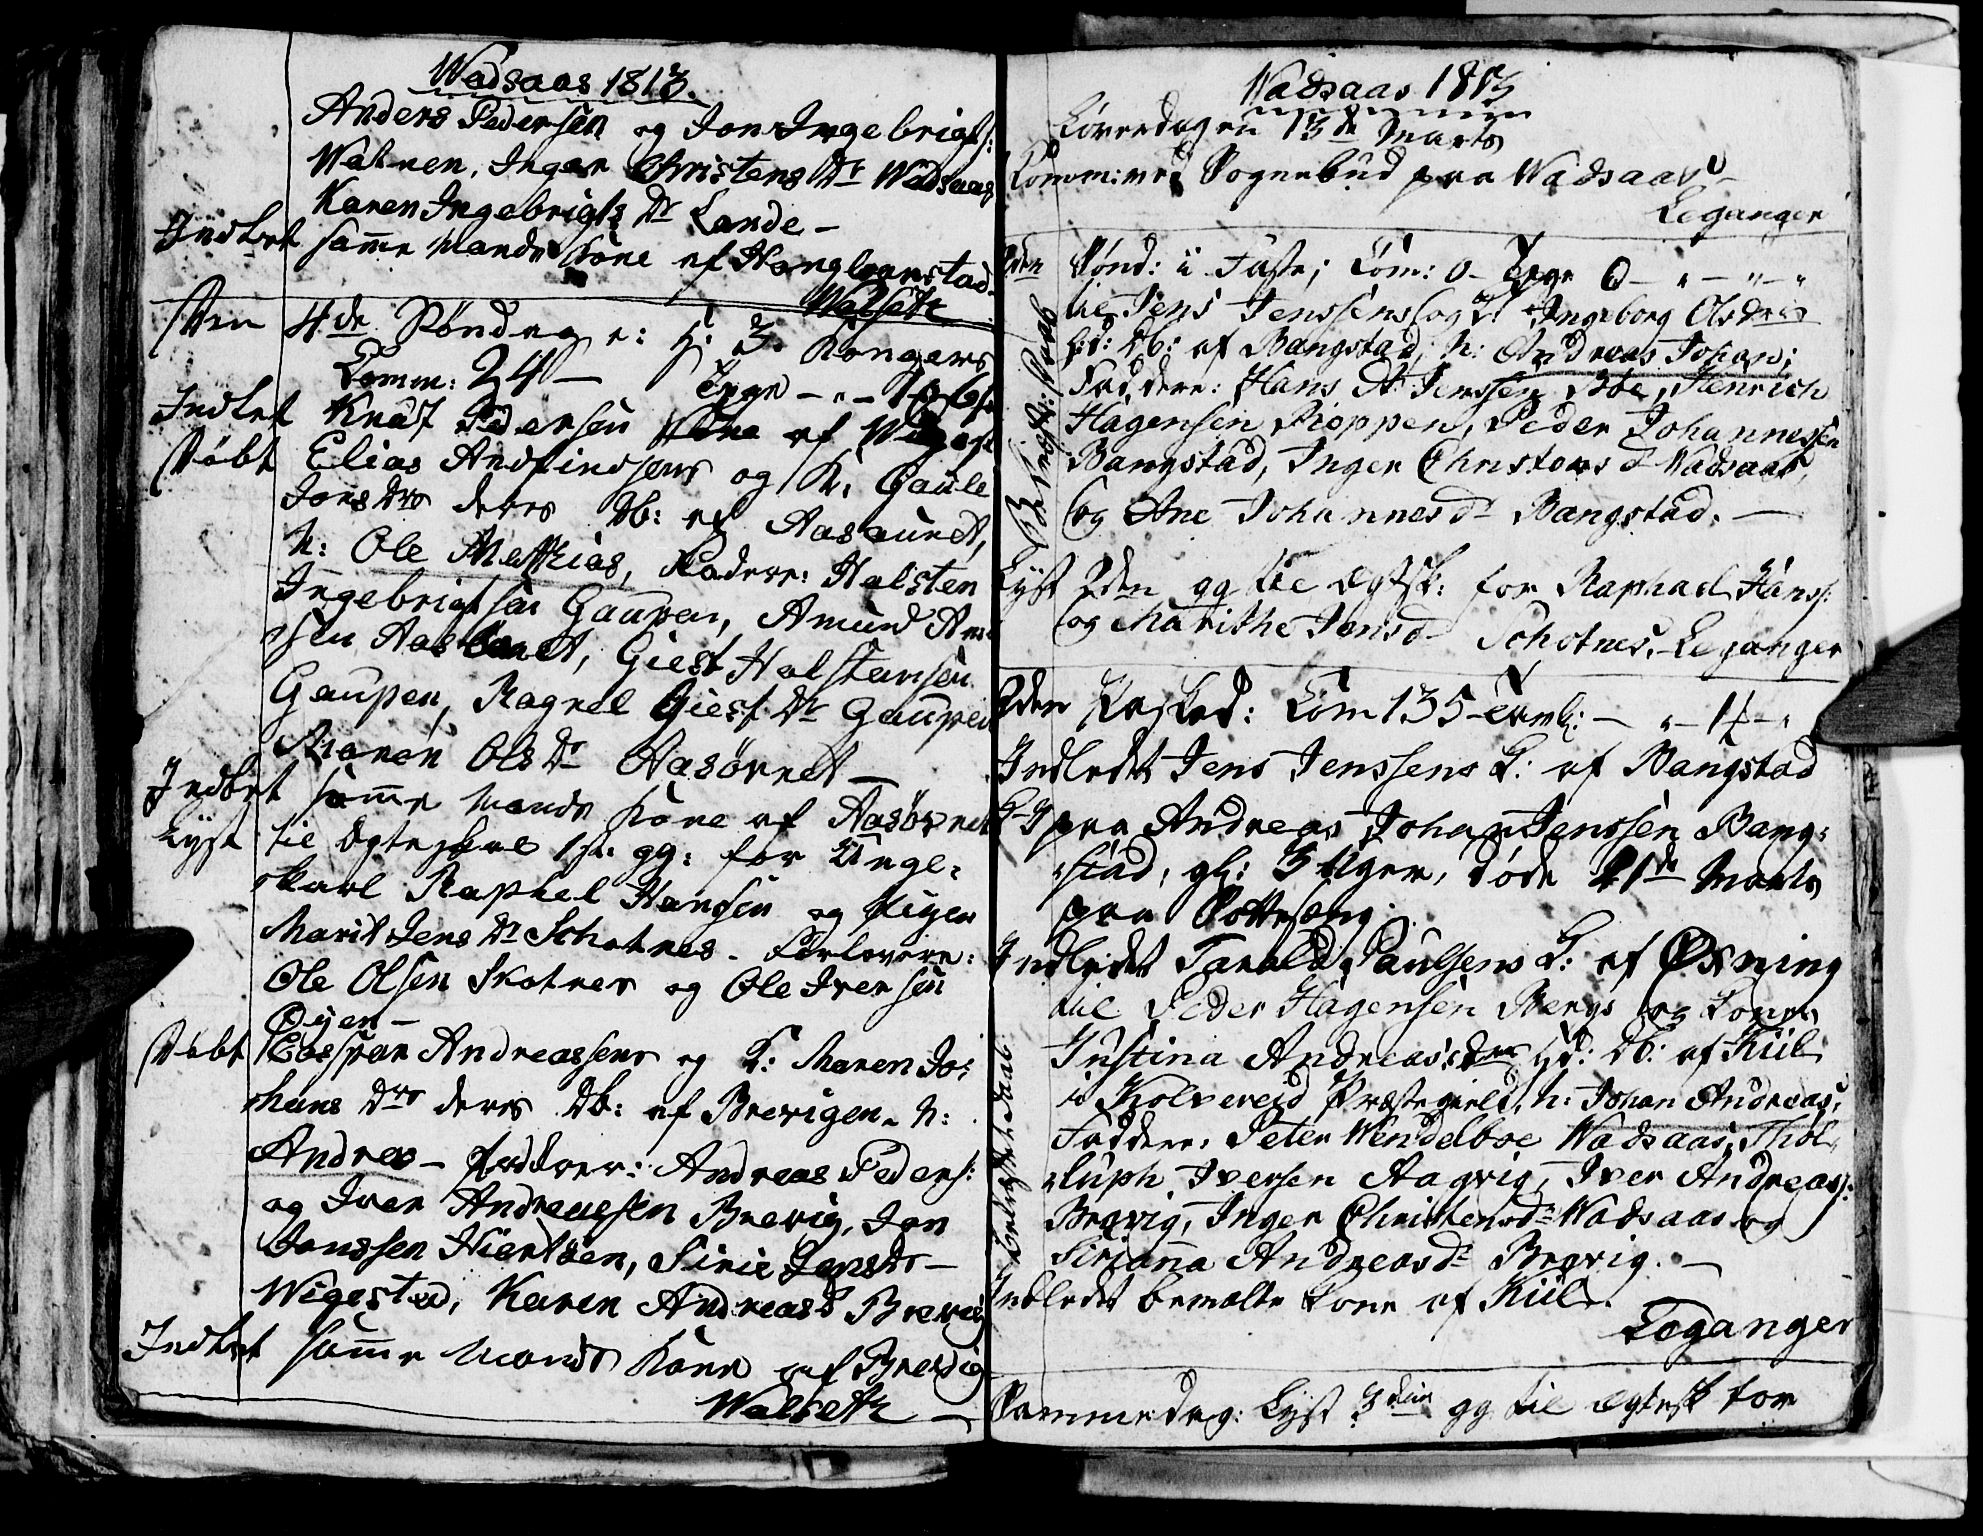 Wadsaas 1813.
Anders Pedersen og Jon Ingebrigts:
Watnen, Inger Christens Dr Wadsaas
Karen Ingebrigts Dr Lande –
Indledt samme Mands Kone af
Walseth
Den 4de Søndag e: H: 3 Kongers
Comm: 24 –
Indledt Knut Pedersen Kone af
Døbt Elias Andfindsens og K:
Jonsdrs deres Db: af Aasauret,
N: Ole Mathias, Faddere: Halsten
Ingebrigtsen Gaupen, Amund
sen Aasauret, Giest Halstensen
Gaupen, Ragnel Giest Dr Gaupen
Maren Ols Dr Aasøvret –
Indledt samme Mands Kone af Aasøvret
Lyst til Ægteskab 1ste gg: for Unge-
karl Raphel Hansen og Pigen
Marit Jens Dr Schotnes. Forlovere:
Ole Olsen Skotnes og Ole Iversen
Øyen –
Døbt Caspar Andreassens og K: Maren Jo-
hans Drs deres Db: af Brevigen. N:
Andreas – Faddere: Andreas Peders:
og Iver Andreasen Brevig, Jon
Jonssen Hiertøen, Sirie Jensdr –
Wigestad, Karen Andreasd Brevig
Indledt samme Mands Kone af Brevig
Walseth –
Wadsaas 1813
Løverdagen 13de Marts
Comm: ved Sognebud paa Wadsaas –
Leganger
2den Sønd: i Faste; Com: 0 –
Døbt
til Jens Jenssens og K: Ingeborg Olsdrs
Db: af Bangstad, N: Andreas Johan;
Faddere: Hans A Jenssen Boe, Henrich
Hagensen Roppen, Peder Johannessen
Bangstad, Inger Christens d Wadsaas,
og Ane Johannesdr Bangstad. –
Lyst 2den gg til Ægtsk: for Raphael Hanss:
og Marithe Jensd Schotnes. Leganger
2den Paasked: Com 135
Indledet Jens Jenssens K: af Bangstad
paa Andreas Johan Jenssen Bang-
stad, gl: 3 Uger, døde 21de Marts
paa
Indledet Tarald Paulsens K: af Øxning
til Peder Hagensen Bergs og Kones
Justina Andreasdrs Db: af Kiil
i Kolvereid Præstegield, N: Johan Andreas,
Faddere: Peter Wendelboe Wadsaas, Thol-
luph Iversen Aagvig, Iver Andreass:
Brævig, Inger Christensdr Wadsaas og
Andreasdr Brævig. –
Indledet bemelte Kone af Kiil.
Leganger
Sammedag: Lyst 3die gg til Ægtesk for